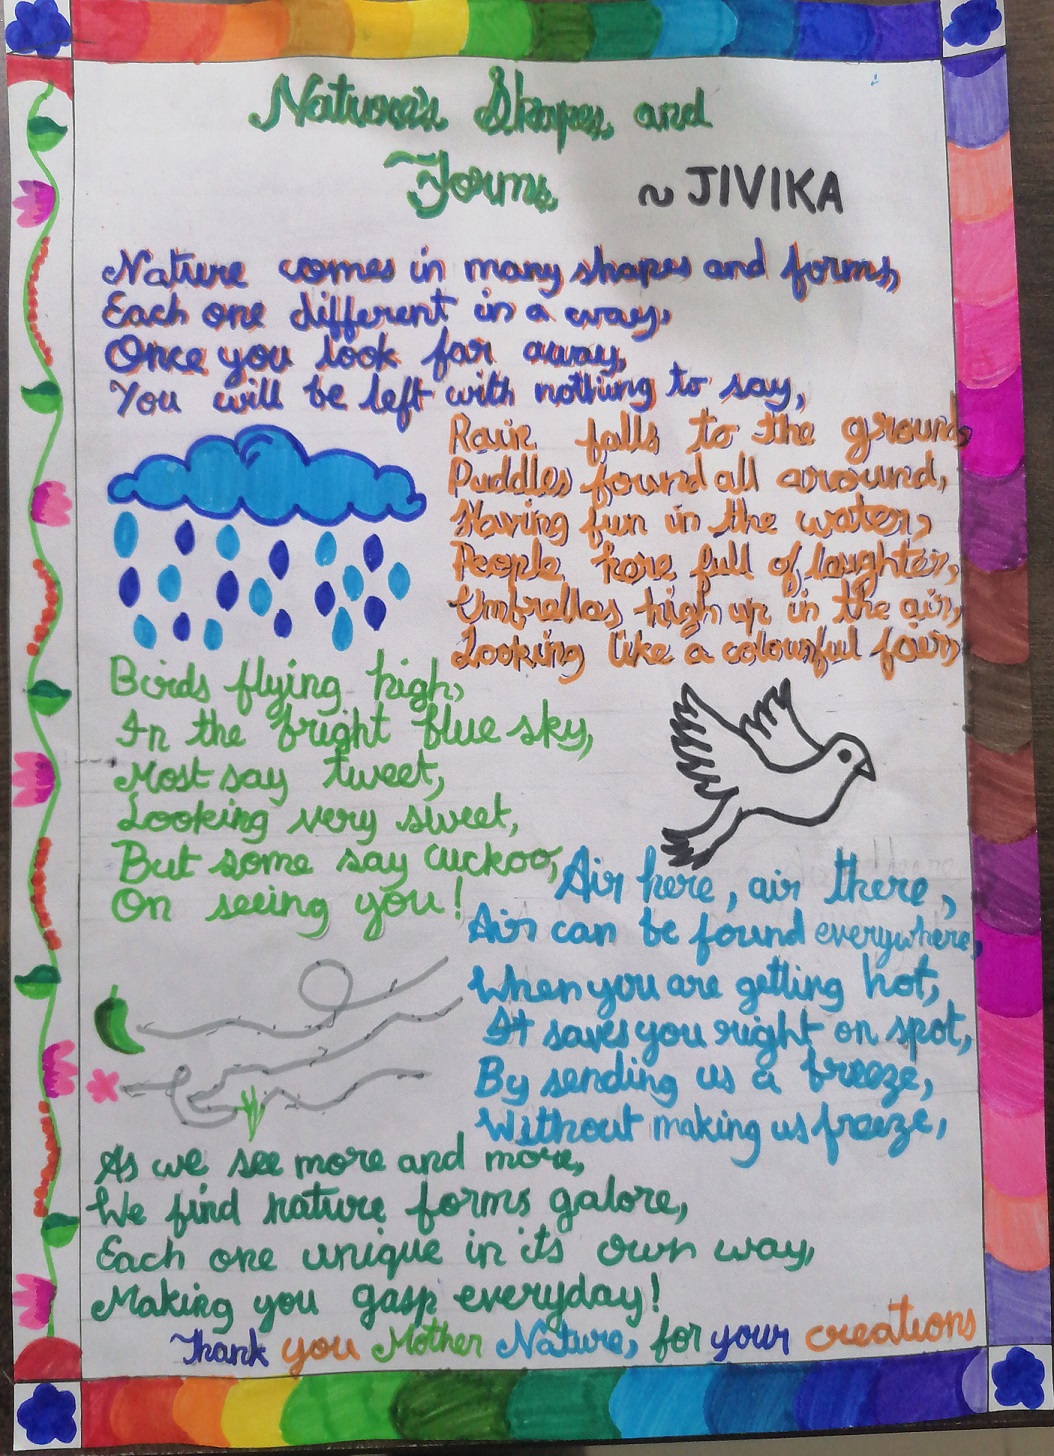 Nature's Shapes and
Forms ~ JIVIKA
Nature comes in many shapes and forms,
Each one different in a way,
Once you look far away,
You will be left with nothing to say,
Rain falls to the ground,
Puddles found all around,
Having fun in the water,
People here full of laughter,
Umbrellas high up in the air,
Looking like a colourful fair,
Birds flying high,
In the bright blue sky,
Most say tweet,
Looking very sweet,
But some say cuckoo,
On seeing you!
Air here, air there,
Air can be found everywhere,
When you are getting hot,
It saves you right on spot,
By sending us a breeze,
Without making us freeze,
As we see more and more,
We find nature forms galore,
Each one unique in its own way,
Making you gasp everyday!
Thank you Mother Nature, for your creations